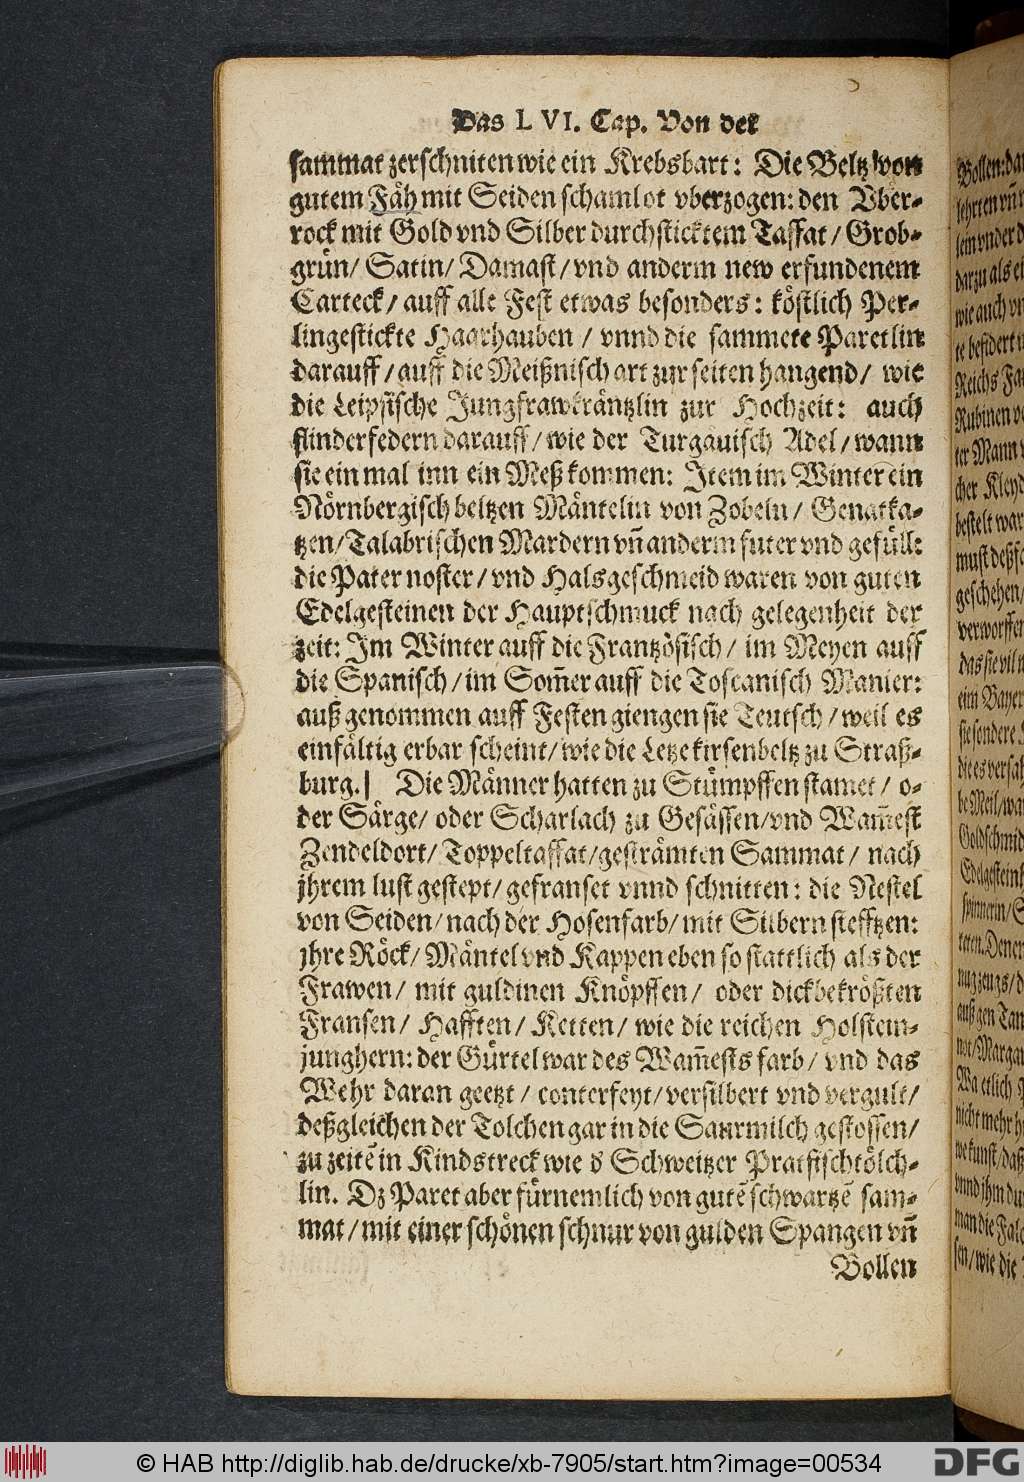 Das LVI. Cap. Von der
sammat zerschniten wie ein Krebsbart: Die Beltz von
gutem Fäh mit Seiden schamlot vberzogen: den Vber-
rock mit Gold vnd Silber durchsticktem Taffat/ Grob-
grün/ Satin/ Damast/ vnd anderm new erfundenem
Carteck/ auff alle Fest etwas besonders: köstlich Per-
lingestickte Haarhauben/ vnnd die sammete Paretlin
darauff/ auff die Meißnisch art zur seiten hangend/ wie
die Leipsische Jungfrawkräntzlin zur Hochzeit: auch
flinderfedern darauff/ wie der Turgäuisch Adel/ wann
sie ein mal inn ein Meß kommen: Item im Winter ein
Nörnbergisch beltzen Mäntelin von Zobeln/ Genatka-
tzen/ Talabrischen Mardern vñ anderm futer vnd gefüll:
die Pater noster/ vnd Halsgeschmeid waren von guten
Edelgesteinen der Hauptschmuck nach gelegenheit der
zeit: Im Winter auff die Frantzösisch/ im Meyen auff
die Spanisch/ im Som̃er auff die Toscanisch Manier:
außgenommen auff Festen giengen sie Teutsch/ weil es
einfältig erbar scheint/ wie die Letze kirsenbeltz zu Straß-
burg.] Die Männer hatten zu Stümpffen stamet/ o-
der Särge/ oder Scharlach zu Gesässen/ vnd Wam̃est
Zendeldort/ Toppeltaffat/ gesträmten Sammat/ nach
jhrem lust gestept/ gefranset vnnd schnitten: die Nestel
von Seiden/ nach der Hosenfarb/ mit Silbern stefftzen:
jhre Röck/ Mäntel vnd Kappen eben so stattlich als der
Frawen/ mit guldinen Knöpffen/ oder dickbekrößten
Fransen/ Hafften/ Ketten/ wie die reichen Holstein-
junghern: der Gürtel war des Wam̃ests farb/ vnd das
Wehr daran geetzt/ conterfeyt/ versilbert vnd vergult/
deßgleichen der Tolchen gar in die Saurmilch gestossen/
zu zeitẽ in Kindstreck wie d Schweitzer Pratfischtölch-
lin. Dz Paret aber fürnemlich von gutẽ schwartzẽ sam-
mat/ mit einer schönen schnur von gulden Spangen vñ
Bollen
© HAB http://diglib.hab.de/drucke/xb-7905/start.htm?image=00534
DFG